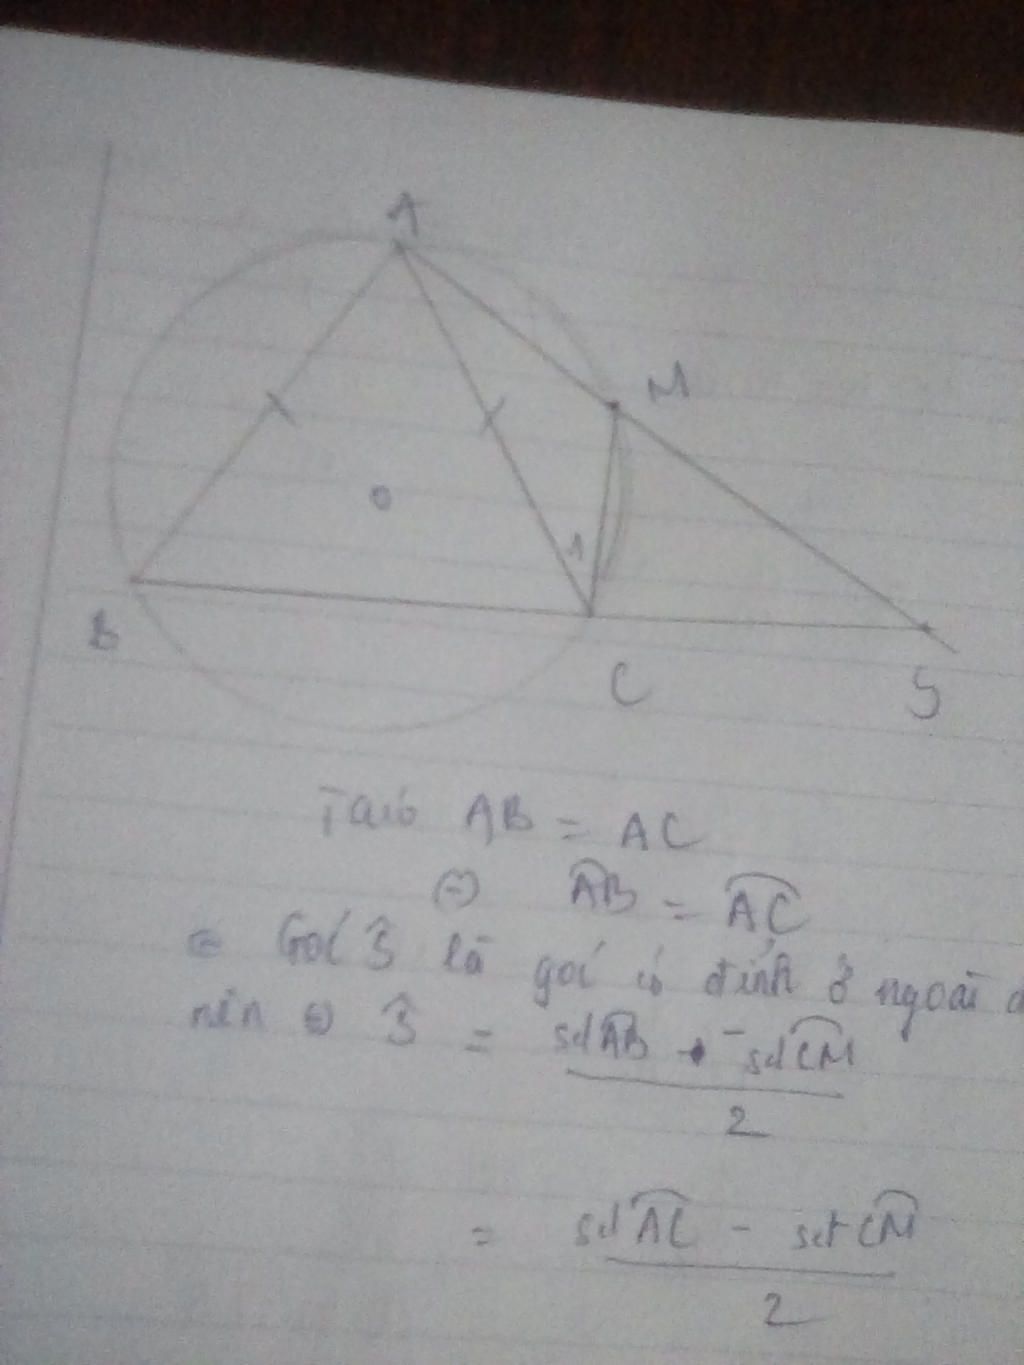 A
M
O
1
B
C
S
Ta có AB = AC
⇔ AB = AC
Góc S là góc có đỉnh ở ngoài
nên S = sđ AB - sđ CM
2
= sđ AC - sđ CM
2